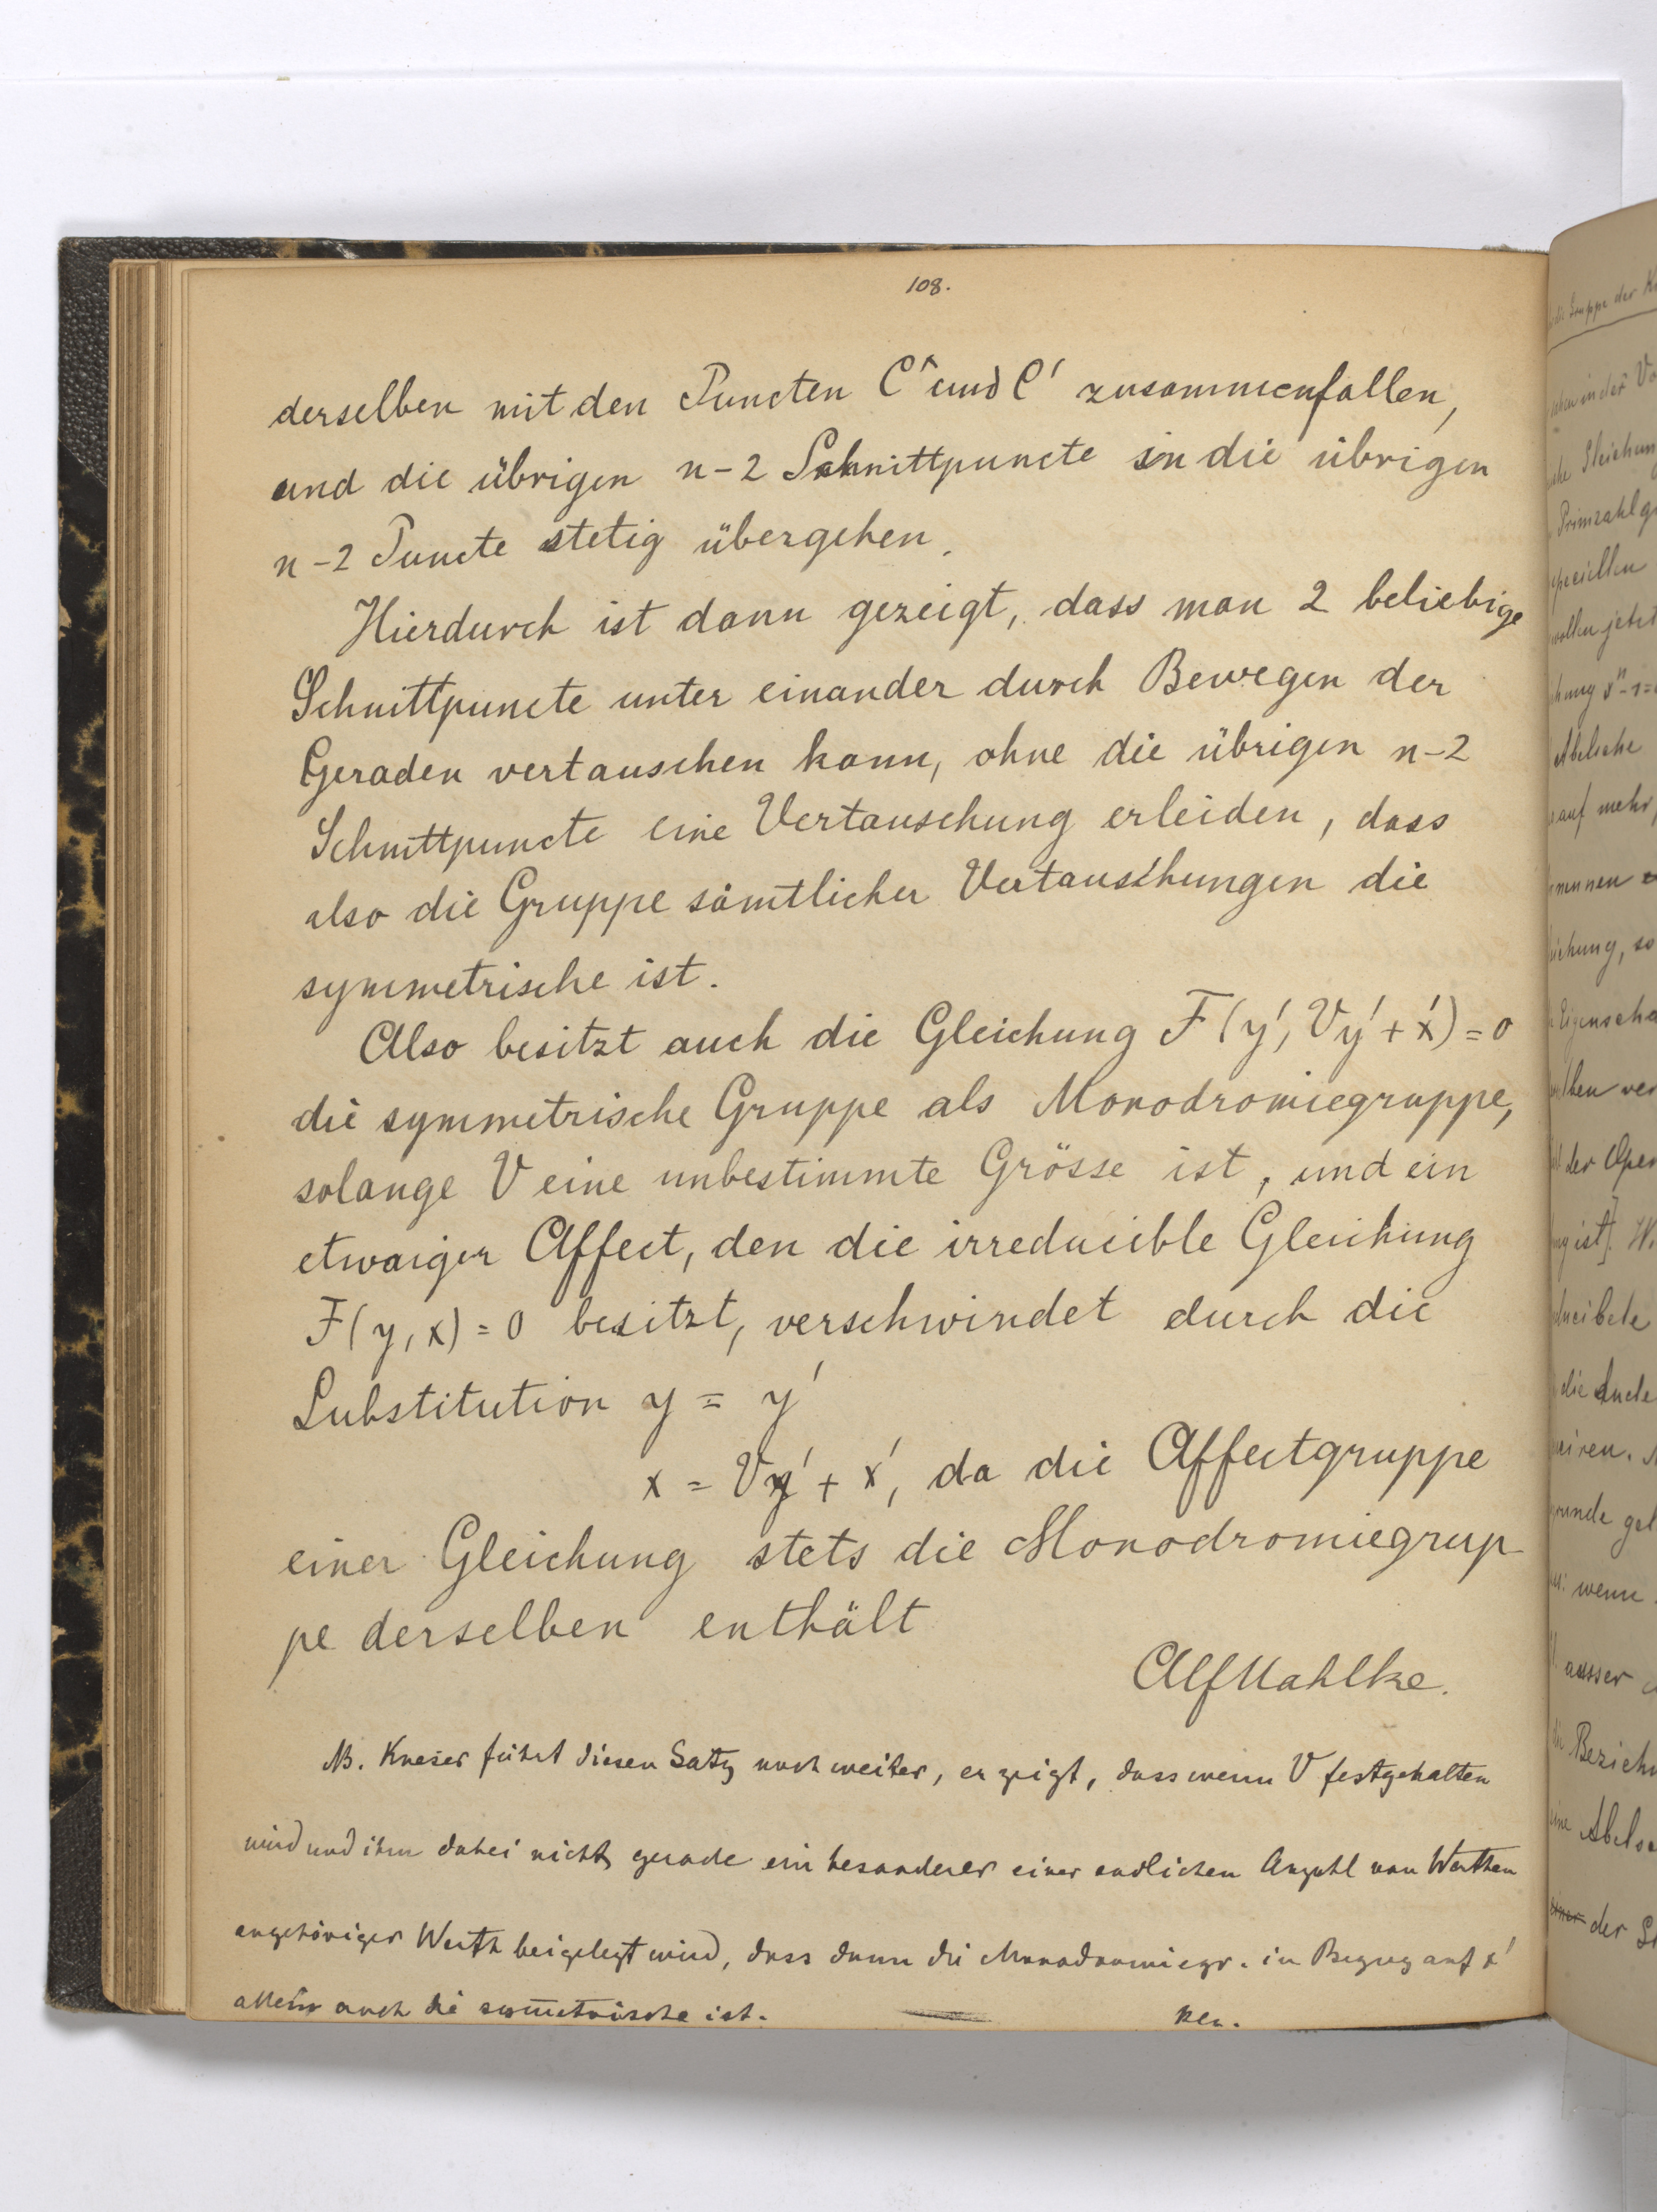 108.
derselben mit den Puncten C^ und C' zusammenfallen,
und die übrigen n-2 Schnittpuncte in die übrigen
n-2 Puncte stetig übergehen.
Hierdurch ist dann gezeigt, dass man 2 beliebige
Schnittpuncte unter einander durch Bewegen der
Geraden vertauschen kann, ohne die übrigen n-2
Schnittpuncte eine Vertauschung erleiden, dass
also die Gruppe sämtlicher Vertauschungen die
symmetrische ist.
Also besitzt auch die Gleichung F(y', Vy'+x')=0
die symmetrische Gruppe als Monodromiegruppe,
solange V eine unbestimmte Grösse ist, und ein
etwaiger Affect, den die irreducible Gleichung
F(y,x)=0 besitzt, verschwindet durch die
Substitution y = y'
x = Vy' + x', da die Affectgruppe
einer Gleichung stets die Monodromiegrup-
pe derselben enthält
Alf Mahlke.
NB. Kneser führt diesen Satz noch weiter, er zeigt, dass wenn V festgehalten
wird und ihm dabei nicht gerade ein besonderer einer endlichen Anzahl von Werthen
angehöriger Werth beigelegt wird, dass dann die Monodromiegr. in Bezug auf x'
allein auch die symmetrische ist.
die Gruppe der
in der
Gleichung
speciellen
wollen jetzt
Abelsche
auf mehr
nennen
Eigenscha
der Oper
ist]. W
die
wenn
ausser
Bezieh
der